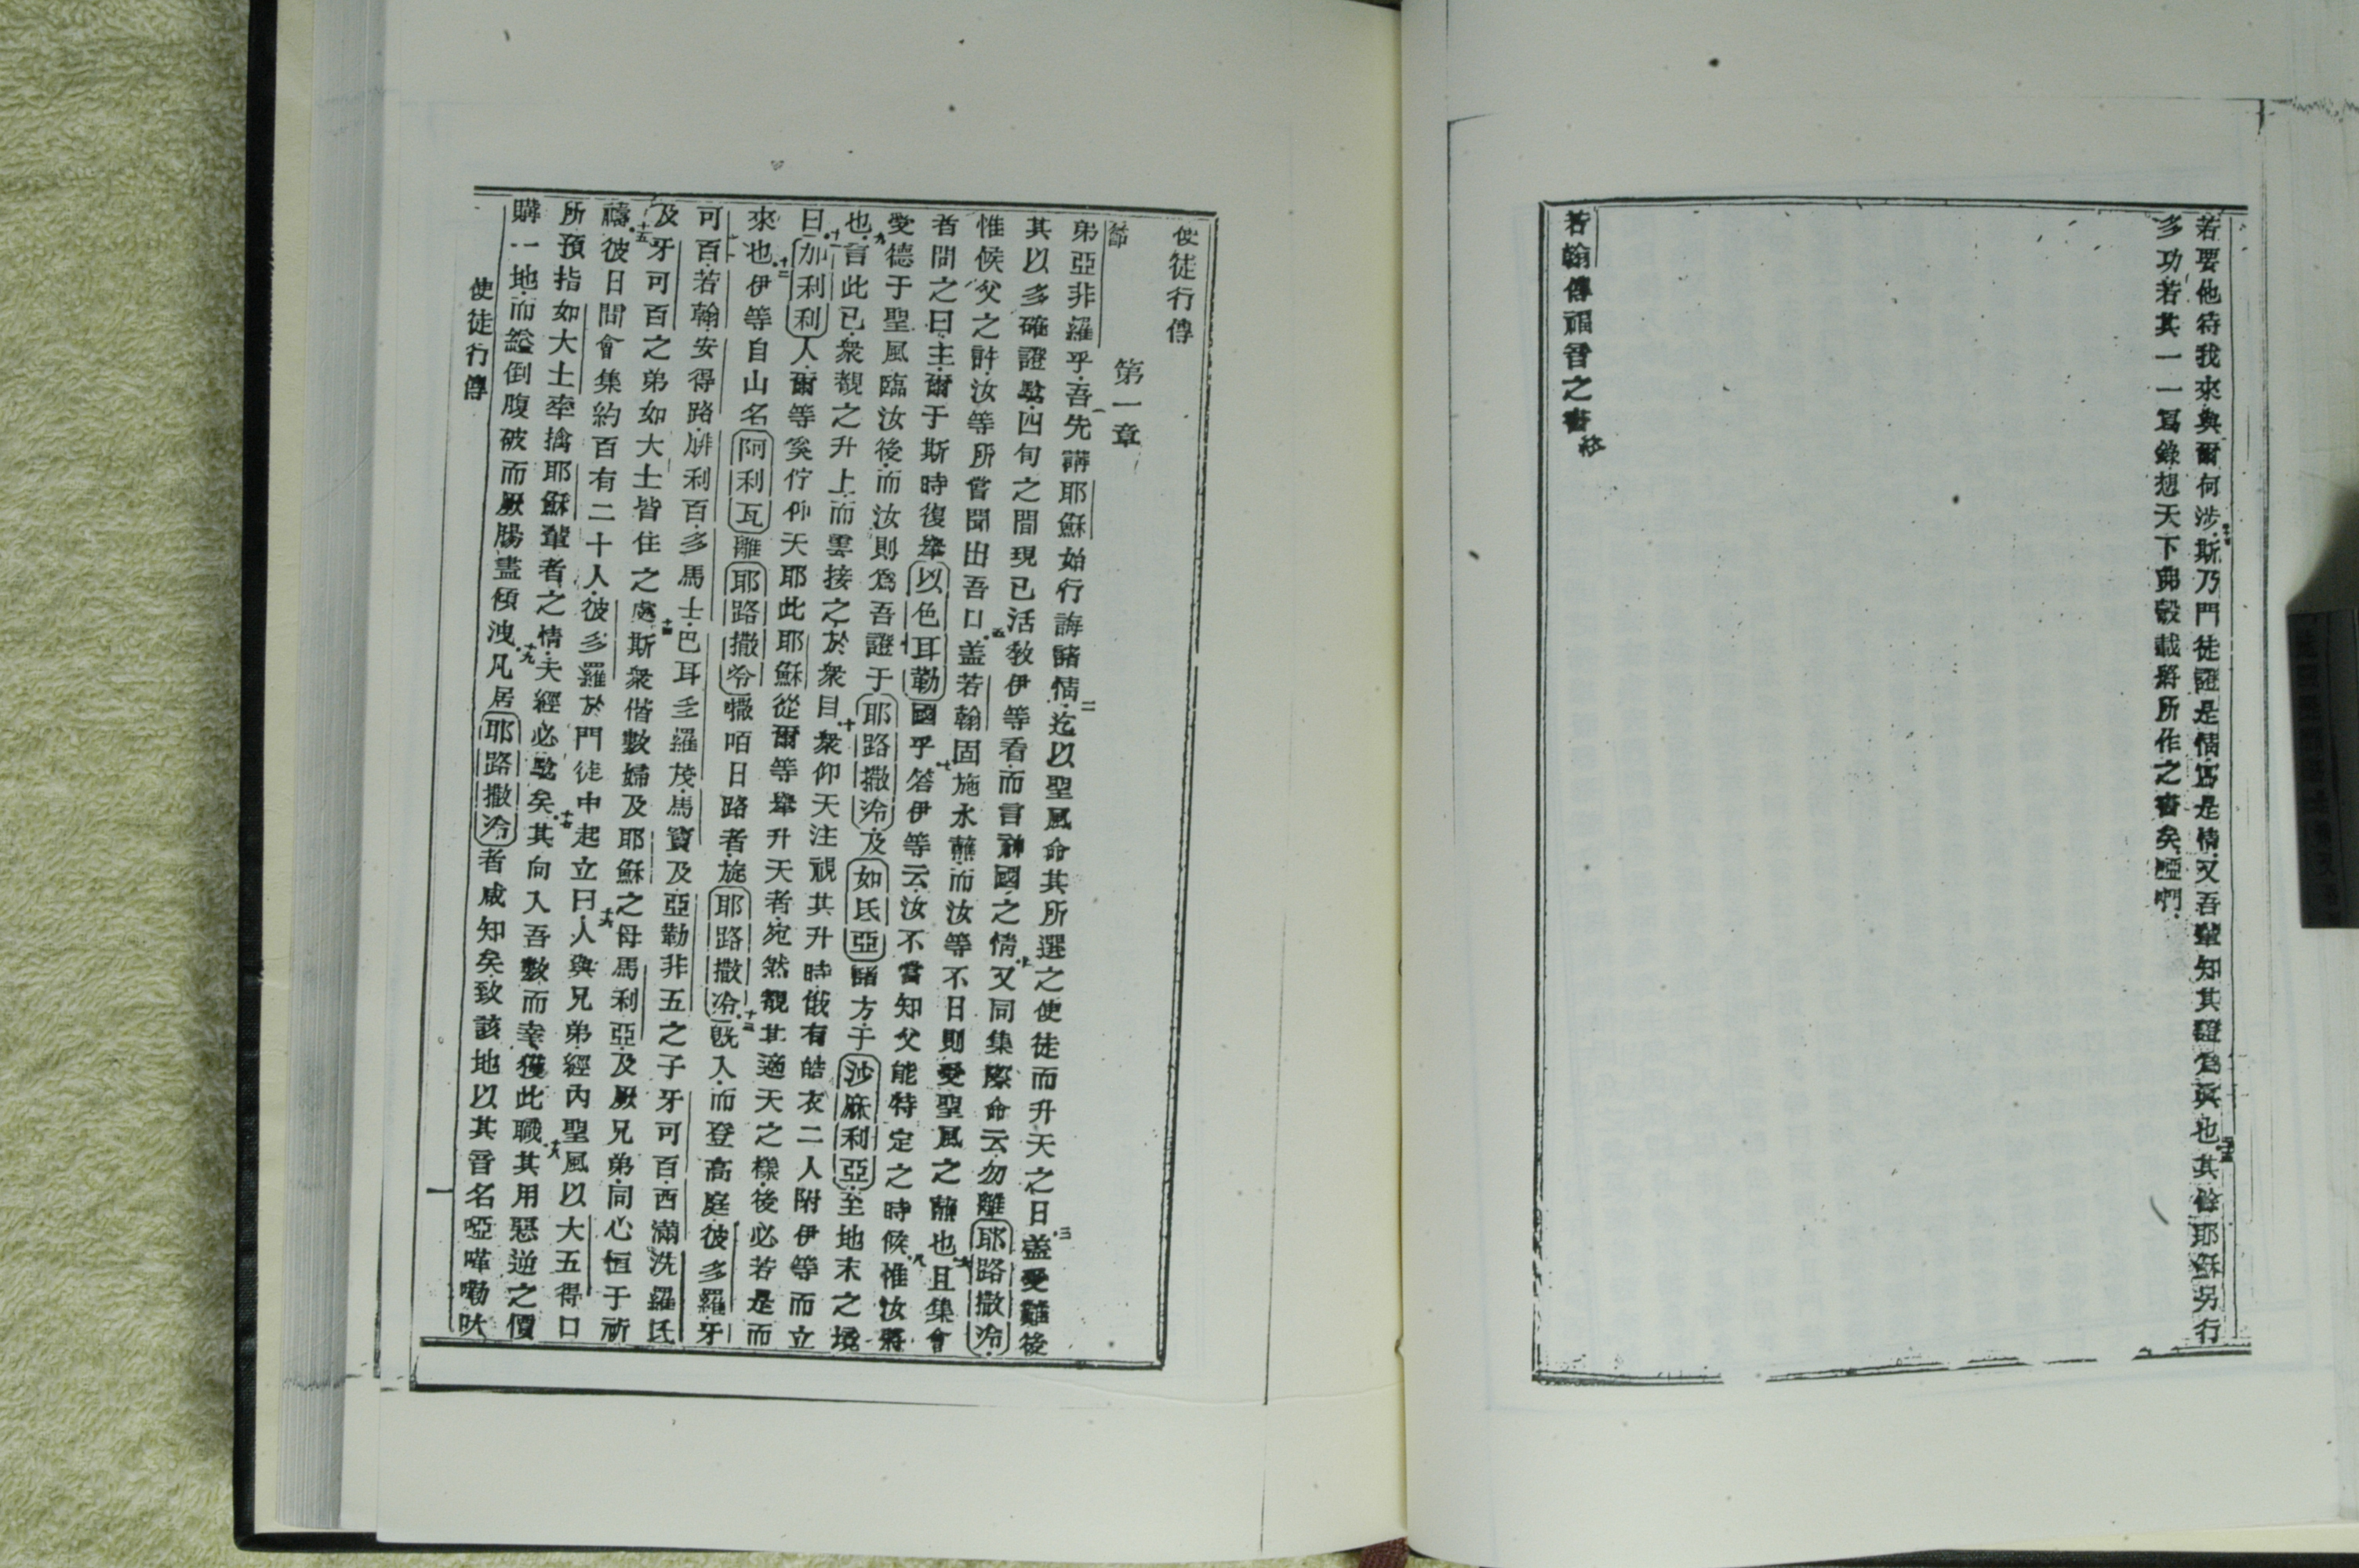 若要他待我來與爾何涉斯乃門徒證是情寫是情又吾輩知其證為眞也其餘耶穌另行
多功若其一一寫錄想天下弗彀載將所作之書矣啞啊
若翰傳福音之書終
使徒行傳
第一章
節
弟亞非羅乎吾先講耶穌始行誨諸情二迄以聖風命其所選之使徒而升天之日三蓋受難後
其以多確證騐四旬之間現已活敎伊等看而言神國之情又同集際命云勿離耶路撒冷
惟候父之許汝等所嘗聞出吾口五蓋若翰固施水蘸而汝等不日則受聖風之蘸也六且集會
者問之曰主爾于斯時復舉以色耳勒國乎七答伊等云汝不當知父能特定之時候八惟汝將
受德于聖風臨汝後而汝則為吾證于耶路撒冷及如氐亞諸方于沙麻利亞至地末之境
也九言此已衆覩之升上而雲接之於衆目十衆仰天注視其升時俄有皓衣二人附伊等而立
曰十一加利利人爾等奚佇仰天耶此耶穌從爾等舉升天者宛然覩其適天之樣後必若是而
來也十二伊等自山名阿利瓦離耶路撒冷㘔咟日路者旋耶路撒冷十三旣入而登高庭彼多羅牙
可百若翰安得路腓利百多馬士巴耳多羅茂馬竇及亞勒非五之子牙可百西滿洗羅氐
及牙可百之弟如大士皆住之處十四斯衆偕數婦及耶穌之母馬利亞及厥兄弟同心恒于祈
禱十五彼日間會集約百有二十人彼多羅於門徒中起立曰十六人與兄弟經內聖風以大五得口
所預指如大士牽擒耶穌輩者之情夫經必騐矣十七其向入吾數而幸獲此職十八其用惡逆之價
購一地而縊倒腹破而厥腸盡傾洩十九凡居耶路撒冷者咸知矣致該地以其音名啞嘩嘞吠
使徒行傳
一